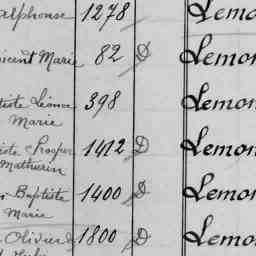 alphonse 1278 Lemo
icent Marie 82 D Lemon
tiste Léonce 398 Lemon
Marie
iste Prosper 1412 D Lemon
Mathurin
Baptiste 1400 D Lemon
Marie
Olivier 1800 D Lemon